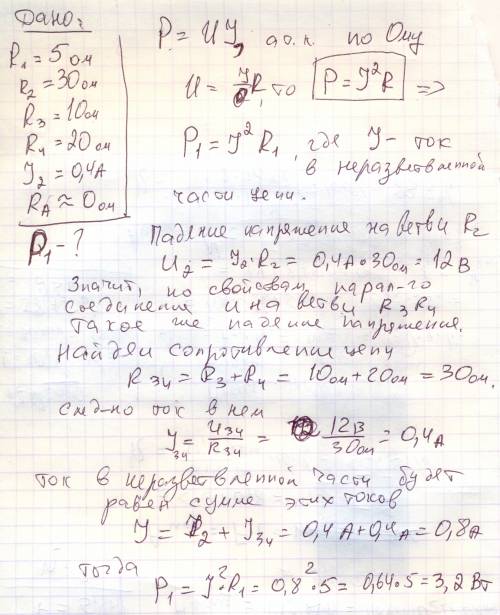 Дано:
R1 = 5 ом
R2 = 30 ом
R3 = 10 ом
R4 = 20 ом
J2 = 0,4А
RA ≈ 0 ом
P1 - ?
P = UJ, а т.к. по Ому
U = JR, то P = J²R =>
P1 = J² R1, где J - ток
в неразветвленной
части цепи.
Падение напряжение на ветви R2
U2 = J2·R2 = 0,4А·30ом = 12 В
Значит, по свойствам парал-го
соединения и на ветви R3 R4
такое же падение напряжения.
Найдём сопротивление цепи
R34 = R3 + R4 = 10ом + 20ом = 30ом.
след-но ток в ней
J34 = U34/R34 = 12В/30ом = 0,4А
ток в неразветвленной части будет
равен сумме этих токов
J = J2 + J34 = 0,4А + 0,4А = 0,8А
тогда
P1 = J²·R1 = 0,8²·5 = 0,64·5 = 3,2 Вт